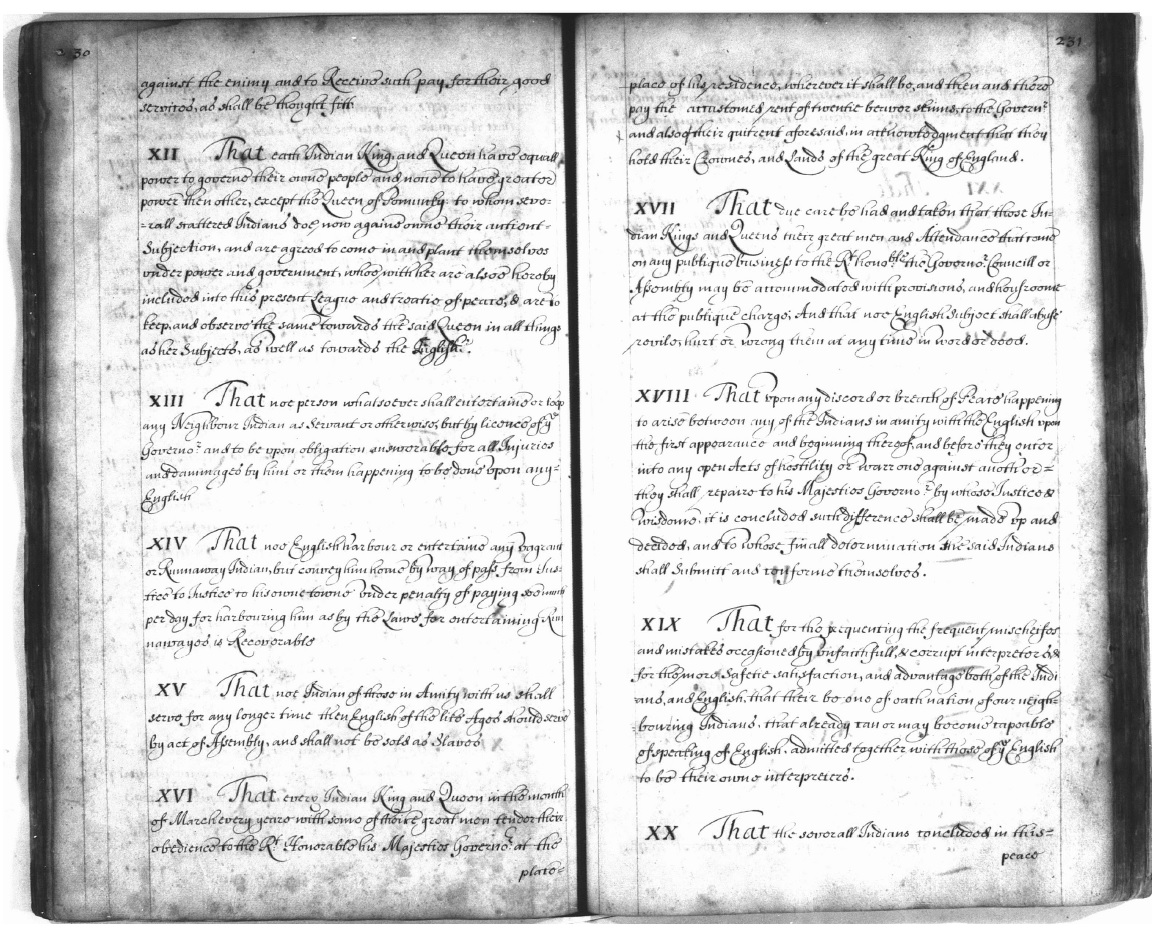 230
against the enimy and to Receive such pay, for their good
services, as shall be thought fitt
XII That each Indian King, and Queen have equall
power to governe their owne people and none to have greater
power then other, except the Queen of Pomunky to whom seve=
=rall scattered Indians doe now againe owne their antient
Subjection, and are agreed to come in and plant themselves
under power and government, whoe with her are alsoe hereby
included into this present League and treatie of peace, & are to
keep, and observe the same towards the said Queen in all things
as her Subjects, as well as towards the English.
XIII That noe person whatsoever shall entertaine or keep
any Neighbour Indian as Servant or otherwise, but by licence of ye
Governor and to be upon obligation answerable for all Injuries
and dammages by him or them happening to be done upon any=
English
XIV That noe English harbour or entertaine any vagrant
or Runnaway Indian, but convey him home by way of pass from Jus=
tice to Justice to his owne towne under penalty of paying soe much
per day for harbouring him as by the Laws for entertaining Run
nawayes is Recoverable
XV That noe Indian of those in Amity with us shall
serve for any longer time then English of the like Ages should serve
by act of Assembly, and shall not be sold as Slaves
XVI That every Indian King and Queen in the month
of March every yeare with some of theire great men tender their
obedience to the Rt Honorable his Majesties Governor at the
place=
231
place of his residence, wherever it shall be, and then and there
pay the accustomed rent of twentie beaver skinns, to the Governr
and alsoe their quitrent aforesaid, in acknowledgment that they
hold their Crownes, and Lands of the great King of England.
XVII That due care be had and taken that those In=
dian Kings and Queens their great men and Attendance that come
on any publique business to the Rt honoble the Governor Councill or
Assembly may be accommodated with provisions, and houseroome
at the publique charge, And that noe English Subject shall abuse
revile, hurt or wrong them at any time in word or deed.
XVIII That upon any discord or breach of Peace happening
to arise between any of the Indians in amity with the English upon
the first appearance and beginning thereof, and before they enter
into any open Acts of hostility or warr one against another=
they shall repaire to his Majesties Governor by whose Justice &
wisdome, it is concluded such difference shall be made up and
decided, and to whose finall determination the said Indians
shall Submitt and conforme themselves.
XIX That for the prequenting the frequent mischeifes
and mistakes occasioned by unfaithfull, & corrupt interpreters, &
for the more Safetie satisfaction, and advantage both of the Indi
ans, and English, that their be one of each nation of our neigh=
bouring Indians, that already can or may become capeable
of speaking of English, admitted together with those of ye English
to be their owne interpreters.
XX That the severall Indians concluded in this=
peace